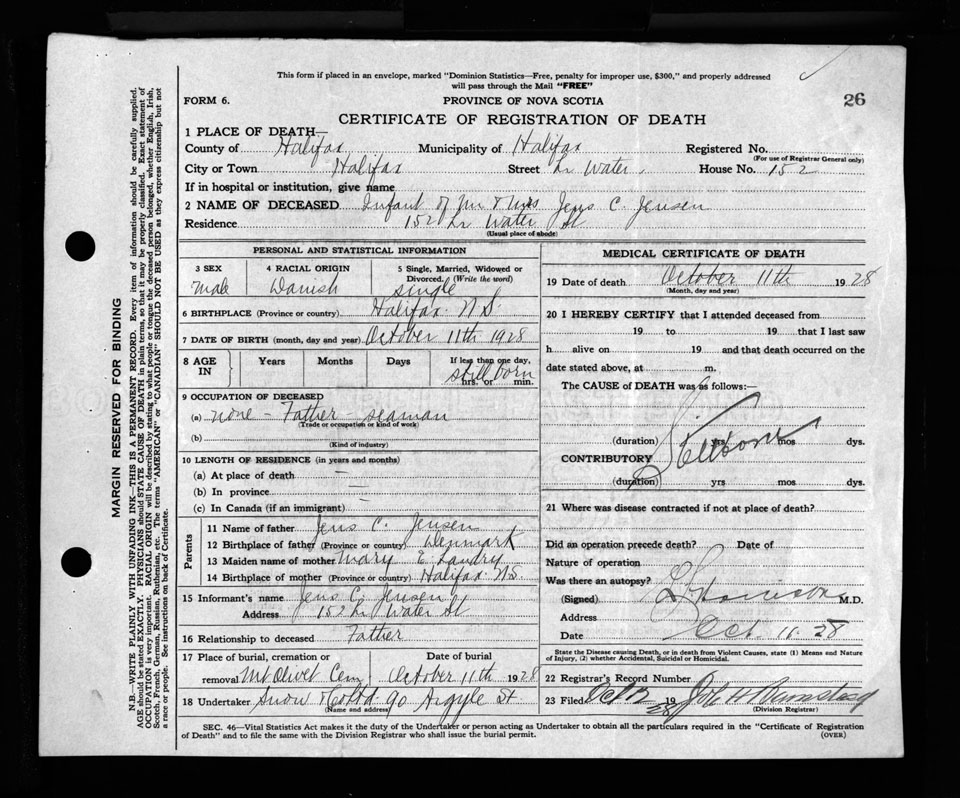 This form if placed in an envelope, marked "Dominion Statistics—Free, penalty for improper use, $300," and properly addressed
will pass through the Mail "FREE"
26
FORM 6.
PROVINCE OF NOVA SCOTIA
CERTIFICATE OF REGISTRATION OF DEATH
1 PLACE OF DEATH—
County of Halifax Municipality of Halifax Registered No.
(For use of Registrar General only)
City or Town Halifax Street Lr Water. House No. 152
If in hospital or institution, give name
2 NAME OF DECEASED Infant of Mr & Mrs Jens C. Jensen
Residence 152 Lr Water St
(Usual place of abode)
PERSONAL AND STATISTICAL INFORMATION
3 SEX 4 RACIAL ORIGIN 5 Single, Married, Widowed or
Divorced. (Write the word)
Male Danish single
6 BIRTHPLACE (Province or country) Halifax. N S
7 DATE OF BIRTH (month, day and year) October 11th 1928
8 AGE IN Years Months Days If less than one day,
still born
hrs. or min.
9 OCCUPATION OF DECEASED
(a) none – Father – seaman
(Trade or occupation or kind of work)
(b)
(Kind of industry)
10 LENGTH OF RESIDENCE (in years and months)
(a) At place of death —
(b) In province —
(c) In Canada (if an immigrant) —
Parents
11 Name of father Jens C. Jensen
12 Birthplace of father (Province or country) Denmark
13 Maiden name of mother Mary E. Landry
14 Birthplace of mother (Province or country) Halifax N.S.
15 Informant's name Jens C. Jensen
Address 152 Lr Water St
16 Relationship to deceased Father
17 Place of burial, cremation or Date of burial
removal Mt Olivet Cem October 11th 1928
18 Undertaker Snow & Co Ltd 90 Argyle St
(Name and address)
MEDICAL CERTIFICATE OF DEATH
19 Date of death October 11th 1928
(Month, day and year)
20 I HEREBY CERTIFY that I attended deceased from
19 to 19 that I last saw
h alive on 19 and that death occurred on the
date stated above, at m.
The CAUSE of DEATH was as follows:—
Stillborn
(duration) yrs mos dys.
CONTRIBUTORY
(duration) yrs mos dys.
21 Where was disease contracted if not at place of death?
Did an operation precede death? Date of
Nature of operation
Was there an autopsy?
(Signed) M.D.
Address
Date Oct. 11. 28
State the Disease causing Death, or in death from Violent Causes, state (1) Means and Nature
of Injury, (2) whether Accidental, Suicidal or Homicidal.
22 Registrar's Record Number
23 Filed Oct 12 1928
(Division Registrar)
SEC. 46—Vital Statistics Act makes it the duty of the Undertaker or person acting as Undertaker to obtain all the particulars required in the "Certificate of Registration
of Death" and to file the same with the Division Registrar who shall issue the burial permit.
(OVER)
MARGIN RESERVED FOR BINDING
N.B.—WRITE PLAINLY WITH UNFADING INK—THIS IS A PERMANENT RECORD. Every item of information should be carefully supplied.
AGE should be stated EXACTLY. PHYSICIANS should STATE CAUSE OF DEATH in plain terms, so that it may be properly classified. Exact statement of
OCCUPATION is very important. RACIAL ORIGIN will be described by stating to what people or tongue the deceased person belonged, whether English, Irish,
Scotch, French, German, Russian, Ruthenian, etc. The terms "AMERICAN" or "CANADIAN" SHOULD NOT BE USED as they express citizenship but not
a race or people. See instructions on back of Certificate.